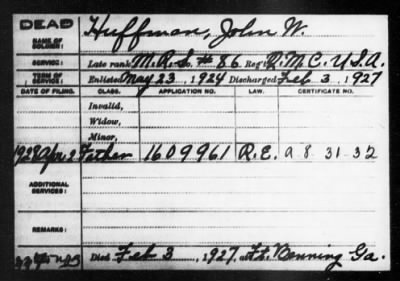 DEAD
NAME OF SOLDIER: Huffman, John W.
SERVICE: Late rank M.R.S. #86 Reg't Q.M.C. U.S.A.
TERM OF SERVICE: Enlisted May 23, 1924 Discharged Feb 3, 1927
DATE OF FILING. CLASS. APPLICATION NO. LAW. CERTIFICATE NO.
Invalid,
Widow,
Minor,
1928 Apr. 2 Father 1609961 R.E. a 8-31-32
ADDITIONAL SERVICES:
REMARKS:
Died Feb 3, 1927, at Ft. Benning Ga.